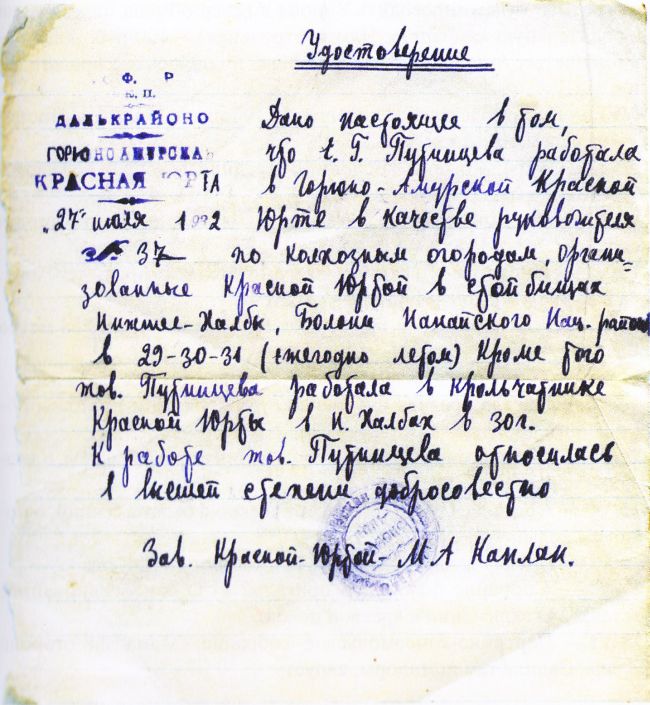 Удостоверение
Ф. Р
Ю. П.
ДАЛЬКРАЙОНО
ГОРЮНО АМУРСКАЯ
КРАСНАЯ ЮРТА
„27" июля 1932
№ 37
Дано настоящее в том,
что Е. Г. Путинцева работала
в Горюно-Амурской Красной
Юрте в качестве руководителя
по колхозным огородам, органи=
зованные Красной Юртой в стойбищах
Нижнее-Халбы, Болони Нанайского Нац. района
в 29-30-31 (ежегодно летом) Кроме того
тов. Путинцева работала в крольчатнике
Красной Юрты в Н. Халбах в 30г.
К работе тов. Путинцева относилась
в высшей степени добросовестно
Зав. Красной-Юртой- М А Каплан.